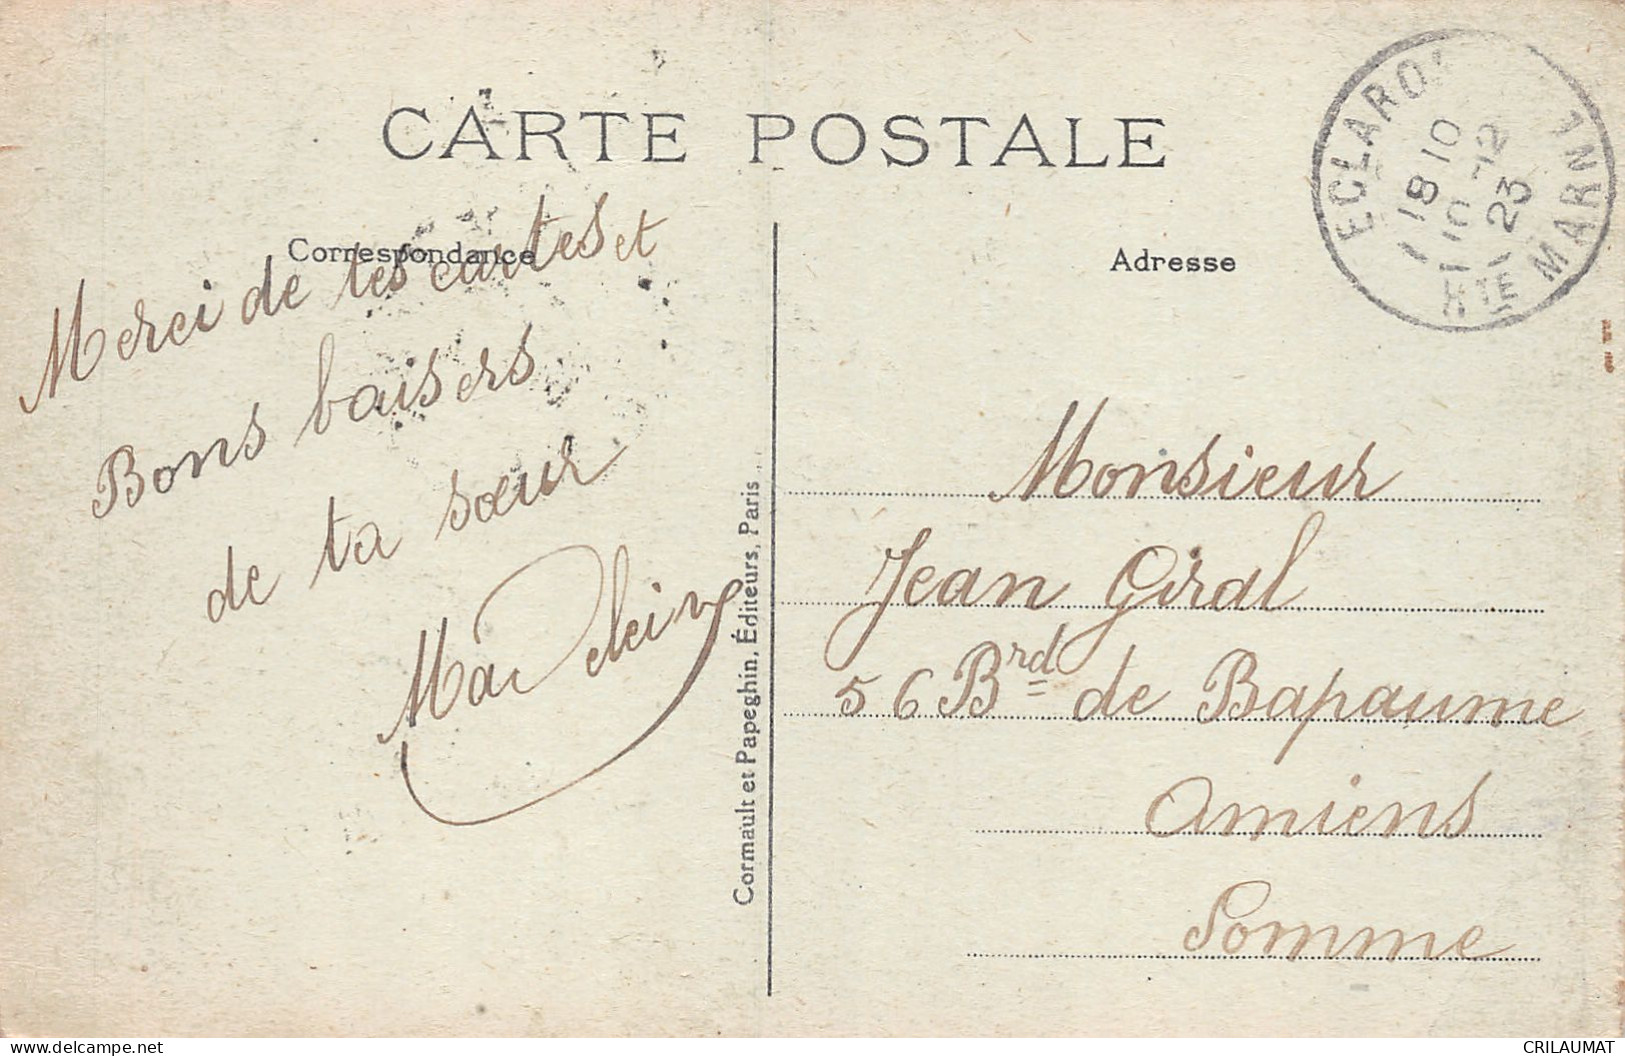 CARTE POSTALE
Correspondance
Merci de tes cartes et
Bons baisers
de ta sœur
Madeleine
Cormault et Papeghin, Éditeurs, Paris
Adresse
ECLARO
18 10
10 -12
23
HTE MARNE
Monsieur
Jean Giral
56 Brd de Bapaume
Amiens
Somme
delcampe.net
CRILAUMAT